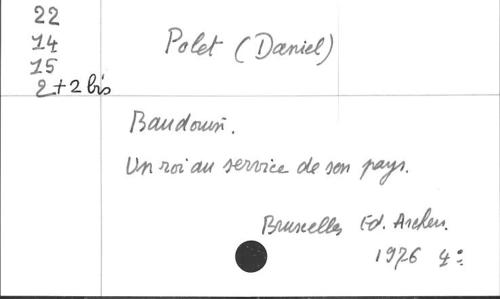 22
14
15
2+2 bis
Polet (Daniel)
Baudouin.
Un roi au service de son pays.
Bruxelles Ed. Archers.
1976 4°